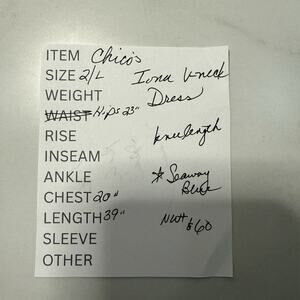 ITEM Chico's
SIZE 2/L Iona V-neck
WEIGHT Dress
WAIST Hips 23"
RISE knee length
INSEAM
ANKLE * Seaway
CHEST 20" Blue
LENGTH 39" NWT $60
SLEEVE
OTHER